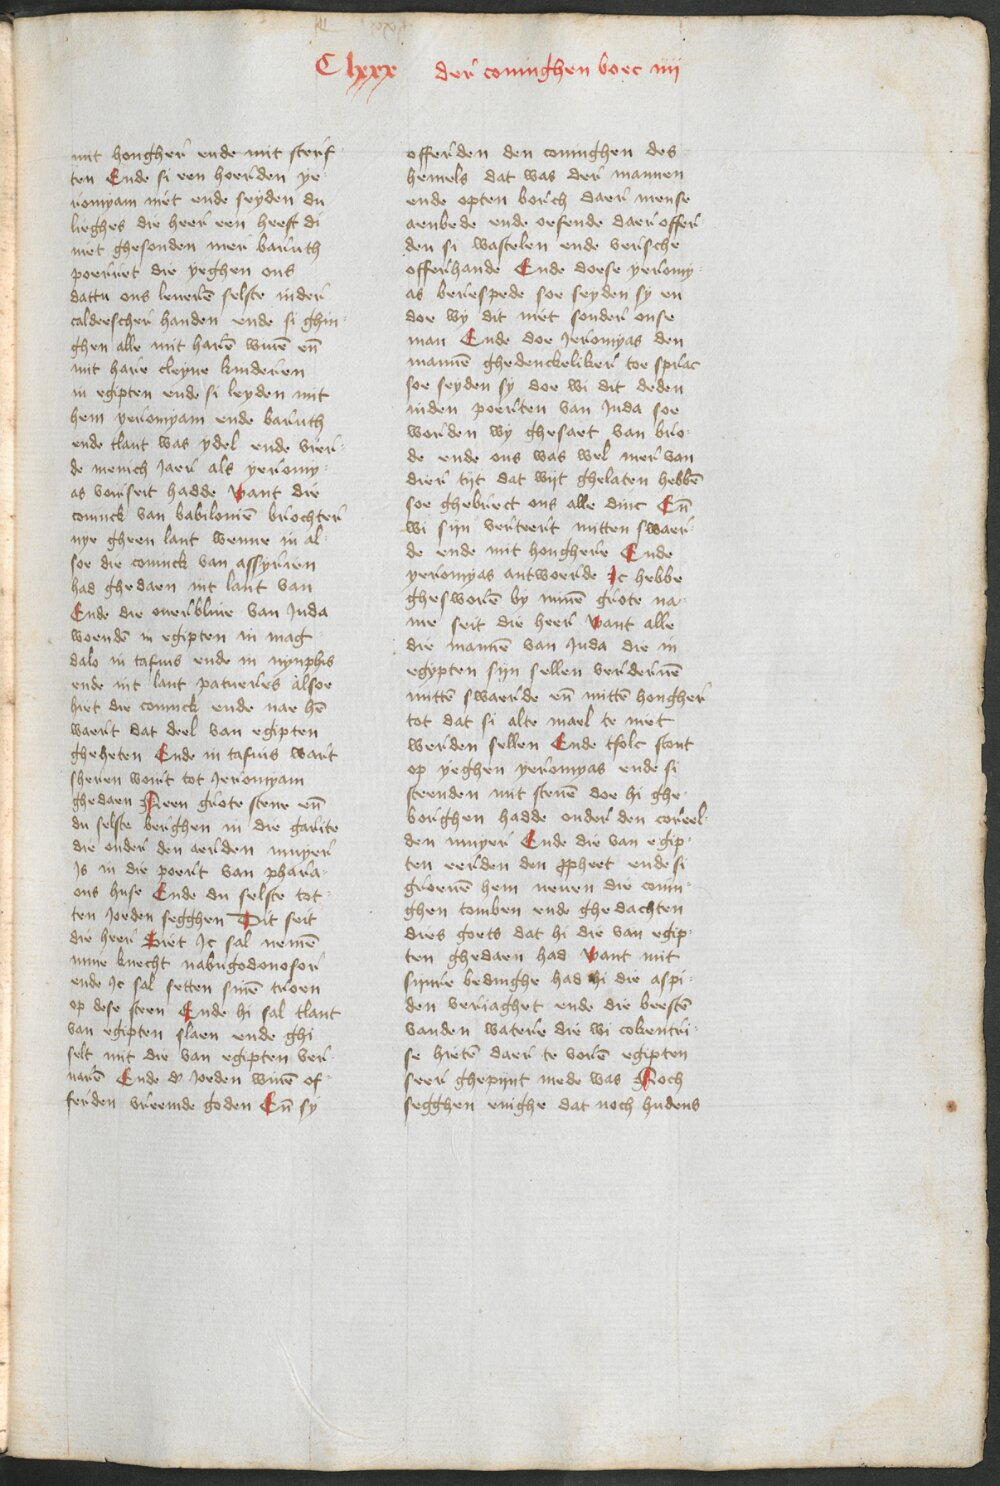 C lxxx der coninghen boec iiij
mit hongher ende mit sterf
ten Ende si een hoerden ye
romyam niet ende seyden du
lieghes die heer een heeft di
niet ghesonden mer baruth
poerret die yeghen ons
dattu ons leuerē selste inder
caldeescher handen ende si ghin
ghen alle mit harē wiuē eñ
mit hare cleyne kinderen
in egipten ende si leyden mit
hem yeromyam ende baruth
ende tlant was ydel ende vier
de menich Jaer als yeromy
as voirseit hadde want die
coninck van babiloniën brochter
nye gheen lant wenne in al
soe die coninck van assyrien
had ghedaen int lant van
Ende die ouerbliue van Juda
woendē in egipten in mag
dalo in tafnis ende in nynphis
ende int lant patueres alsoe
hiet die coninck ende nae hē
waert dat deel van egipten
gheheten Ende in tafnis wart
sheren woirt tot Jeromyam
ghedaen Neen grote stene eñ
du selste berghen in die garite
die onder den aerden muyer
Js in die poert van phara
ons huse Ende du selste tot
ten Joeden segghen Dit seit
die heer Siet Jc sal nemē
mine knecht nabugodonosor
ende Jc sal setten sinē troen
op dese steen Ende hi sal tlant
van egipten slaen ende ghi
selt mit die van egipten ver
uarē Ende d' Joeden wiuē of
ferden vreemde goden Eñ sy
offerden den coninghen des
hemels dat was der mannen
ende opten borch daer mense
aenbede ende oefende daer offer
den si wastelen ende versche
offerhande Ende doese yeromy
as berespede soe seyden sy en
doe wy dit niet sonder onse
man Ende doe Jeromyas den
mannē ghedenckeliker toe sprac
soe seyden sy doe wi dit deden
inden poerten van Juda soe
worden wy ghesaet van bro
de ende ons was wel mer van
dier tijt dat wijt ghelaten hebbē
soe ghebrect ons alle dinc Eñ
wi sijn verteert mitten swaer
de ende mit honghere Ende
yeromyas antwoerde Jc hebbe
ghesworē by minē grote na
me seit die heer want alle
die mannē van Juda die in
egypten sijn sellen verderuē
mittē swaerde eñ mittē hongher
tot dat si alte mael te niet
werden sellen Ende tfolc stont
op yeghen yeromyas ende si
steenden mit stenē doe hi ghe
borghen hadde onder den coreel
den muyer Ende die van egip
ten eerden den ꝓpheet ende si
groeuē hem neuen die conin
ghen tomben ende ghedachten
dies goets dat hi die van egip
ten ghedaen had want mit
sijnre bedinghe had hi die aspi
den veriaghet ende die beestē
vanden watere die wi cokentri
se hietē daer te vorē egipten
seer ghepijnt mede was Noch
segghen enighe dat noch hudens